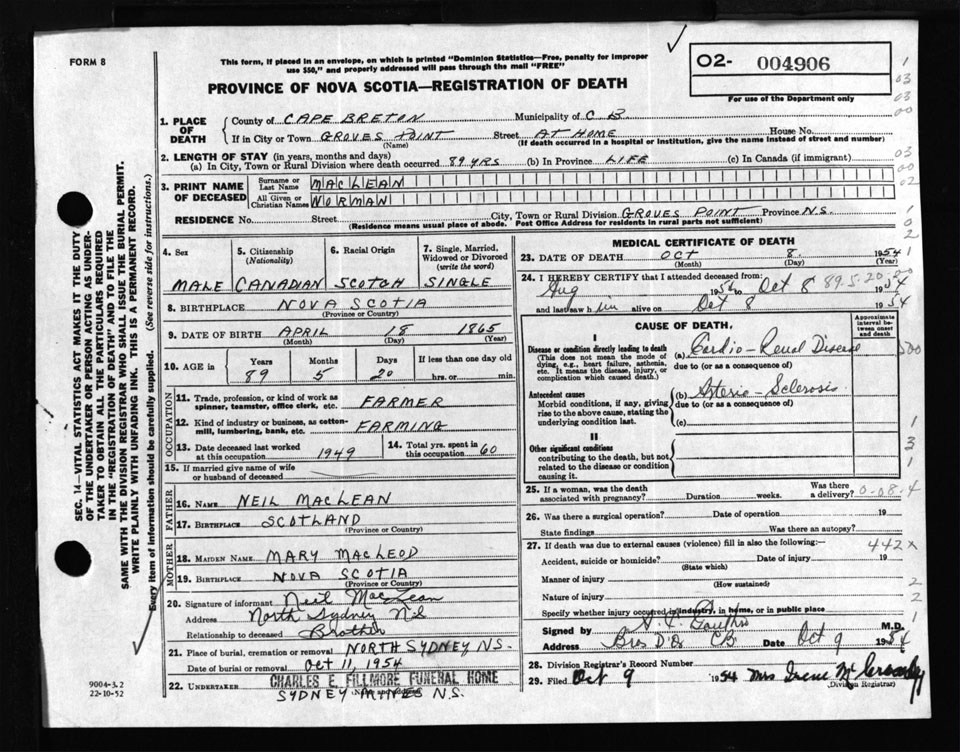 FORM 8
This form, if placed in an envelope, on which is printed "Dominion Statistics—Free, penalty for improper
use $50," and properly addressed will pass through the mail "FREE"
PROVINCE OF NOVA SCOTIA—REGISTRATION OF DEATH
02- 004906
For use of the Department only
1. PLACE OF DEATH
County of CAPE BRETON Municipality of C B.
If in City or Town GROVES POINT Street AT HOME House No.
(Name) (If death occurred in a hospital or institution, give the name instead of street and number)
2. LENGTH OF STAY (in years, months and days)
(a) In City, Town or Rural Division where death occurred 89 YRS (b) In Province LIFE (c) In Canada (if immigrant)
3. PRINT NAME OF DECEASED
Surname or Last Name MACLEAN
All Given or Christian Names NORMAN
RESIDENCE No. Street City, Town or Rural Division GROVES POINT Province N.S.
(Residence means usual place of abode. Post Office Address for residents in rural parts not sufficient)
4. Sex
MALE
5. Citizenship (Nationality)
CANADIAN
6. Racial Origin
SCOTCH
7. Single, Married, Widowed or Divorced (write the word)
SINGLE
8. BIRTHPLACE NOVA SCOTIA
(Province or Country)
9. DATE OF BIRTH APRIL 18 1865
(Month) (Day) (Year)
10. AGE in Years Months Days If less than one day old
89 5 20 hrs. or min.
OCCUPATION
11. Trade, profession, or kind of work as
spinner, teamster, office clerk, etc. FARMER
12. Kind of industry or business, as cotton-
mill, lumbering, bank, etc. FARMING
13. Date deceased last worked
at this occupation 1949
14. Total yrs. spent in
this occupation 60
15. If married give name of wife
or husband of deceased
FATHER
16. NAME NEIL MACLEAN
17. BIRTHPLACE SCOTLAND
(Province or Country)
MOTHER
18. MAIDEN NAME MARY MACLEOD
19. BIRTHPLACE NOVA SCOTIA
(Province or Country)
20. Signature of informant Neil MacLean
Address North Sydney NS
Relationship to deceased Brother
21. Place of burial, cremation or removal NORTH SYDNEY N.S.
Date of burial or removal Oct 11, 1954
22. UNDERTAKER CHARLES E. FILLMORE FUNERAL HOME
SYDNEY MINES N.S.
MEDICAL CERTIFICATE OF DEATH
23. DATE OF DEATH OCT 8. 1954
(Month) (Day) (Year)
24. I HEREBY CERTIFY that I attended deceased from
Aug 195 to Oct 8 1954
89.5.20
and last saw him alive on Oct 8 1954
CAUSE OF DEATH
Approximate interval between onset and death
I
Disease or condition directly leading to death
(This does not mean the mode of
dying, e.g., heart failure, asthenia,
etc. It means the disease, injury, or
complication which caused death.)
(a) Cardio-Renal Disease
due to (or as a consequence of)
Antecedent causes
Morbid conditions, if any, giving
rise to the above cause, stating the
underlying condition last.
(b) Arterio-Sclerosis
due to (or as a consequence of)
(c)
II
Other significant conditions
contributing to the death, but not
related to the disease or condition
causing it.
25. If a woman, was the death
associated with pregnancy? Duration weeks. Was there a delivery?
0-08-4
26. Was there a surgical operation? Date of operation 19
State findings Was there an autopsy?
27. If death was due to external causes (violence) fill in also the following:—
442x
Accident, suicide or homicide? Date of injury 19
(State which)
Manner of injury
(How sustained)
Nature of injury
Specify whether injury occurred in industry, in home, or in public place
Signed by M.D.
Address CB Date Oct 9 1954
28. Division Registrar's Record Number
29. Filed Oct 9 1954 Mrs Irene
(Division Registrar)
SEC. 14—VITAL STATISTICS ACT MAKES IT THE DUTY
OF THE UNDERTAKER OR PERSON ACTING AS UNDER-
TAKER TO OBTAIN ALL THE PARTICULARS REQUIRED
IN THE "REGISTRATION OF DEATH" AND TO FILE THE
SAME WITH THE DIVISION REGISTRAR WHO SHALL ISSUE THE BURIAL PERMIT.
WRITE PLAINLY WITH UNFADING INK. THIS IS A PERMANENT RECORD.
Every item of Information should be carefully supplied. (See reverse side for instructions.)
9004-3.2
22-10-52